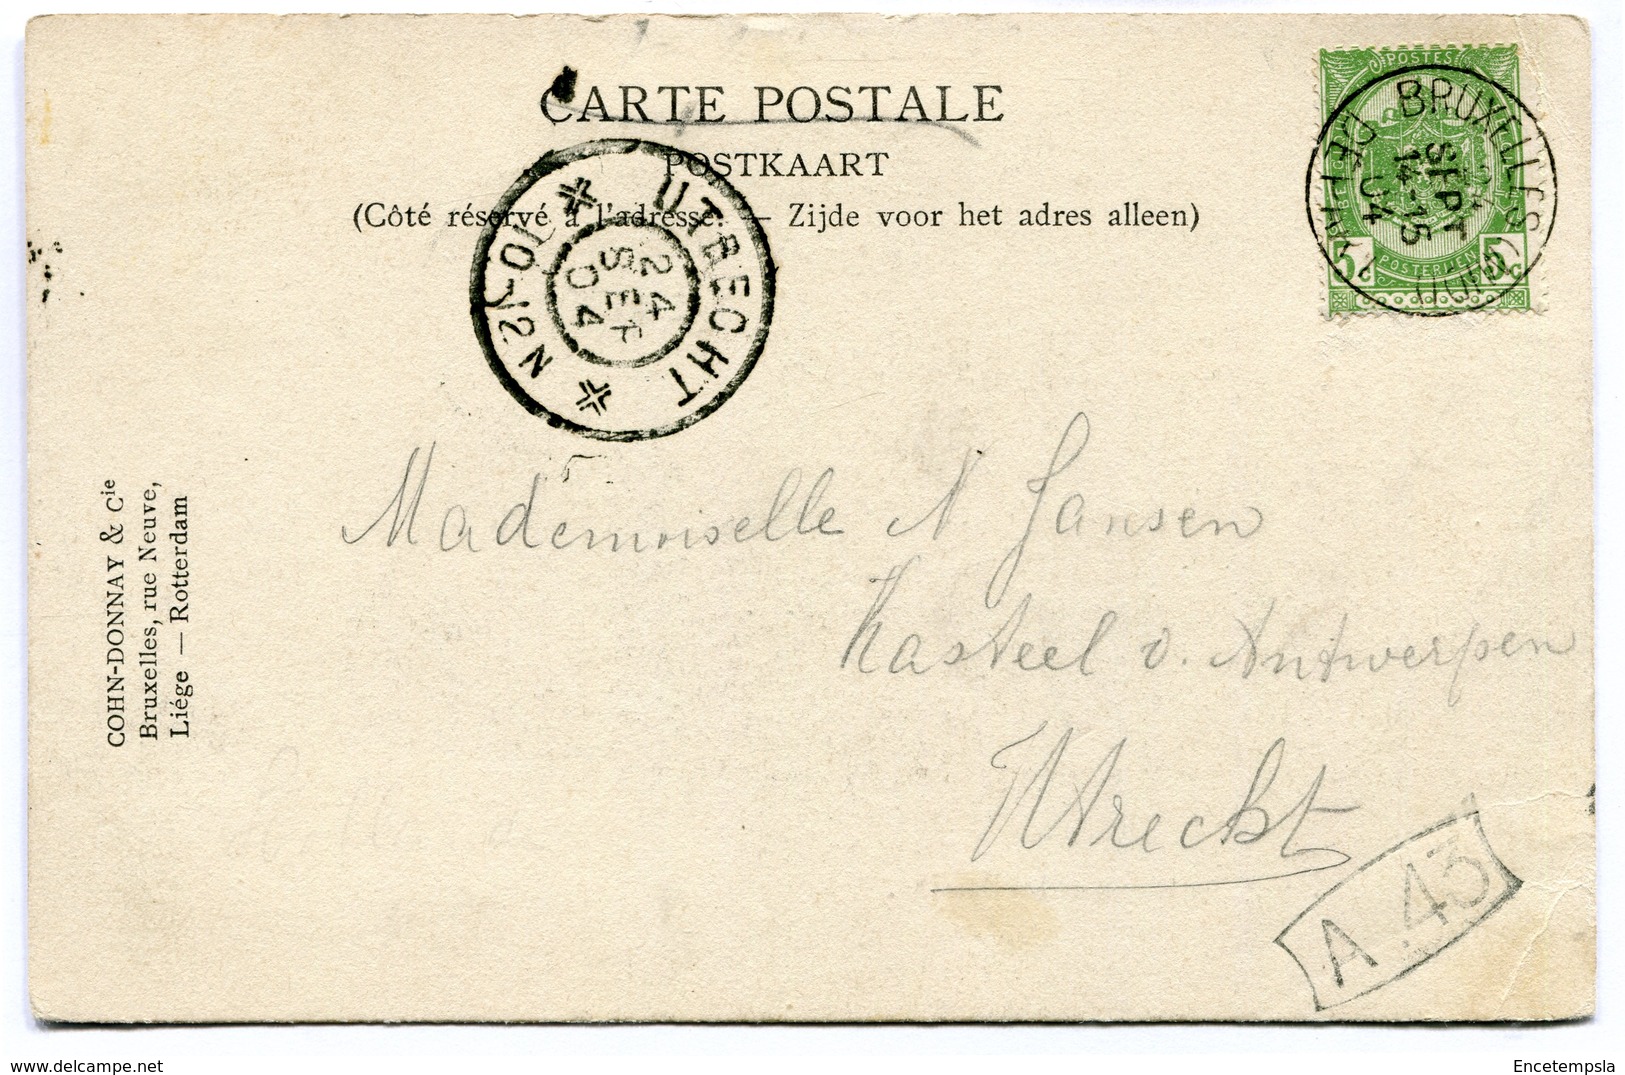 CARTE POSTALE
POSTKAART
(Côté réservé à l'adresse. — Zijde voor het adres alleen)
POSTES
BRUXELLES
SEPT
14-15
04
DÉPART
5c 5c
POSTERIJEN
UTRECHT
24
SEP
04
10-12N
COHN-DONNAY & Cie
Bruxelles, rue Neuve,
Liége — Rotterdam
Mademoiselle N Jansen
Kasteel v. Antwerpen
Utrecht
A 43
Encetempsla